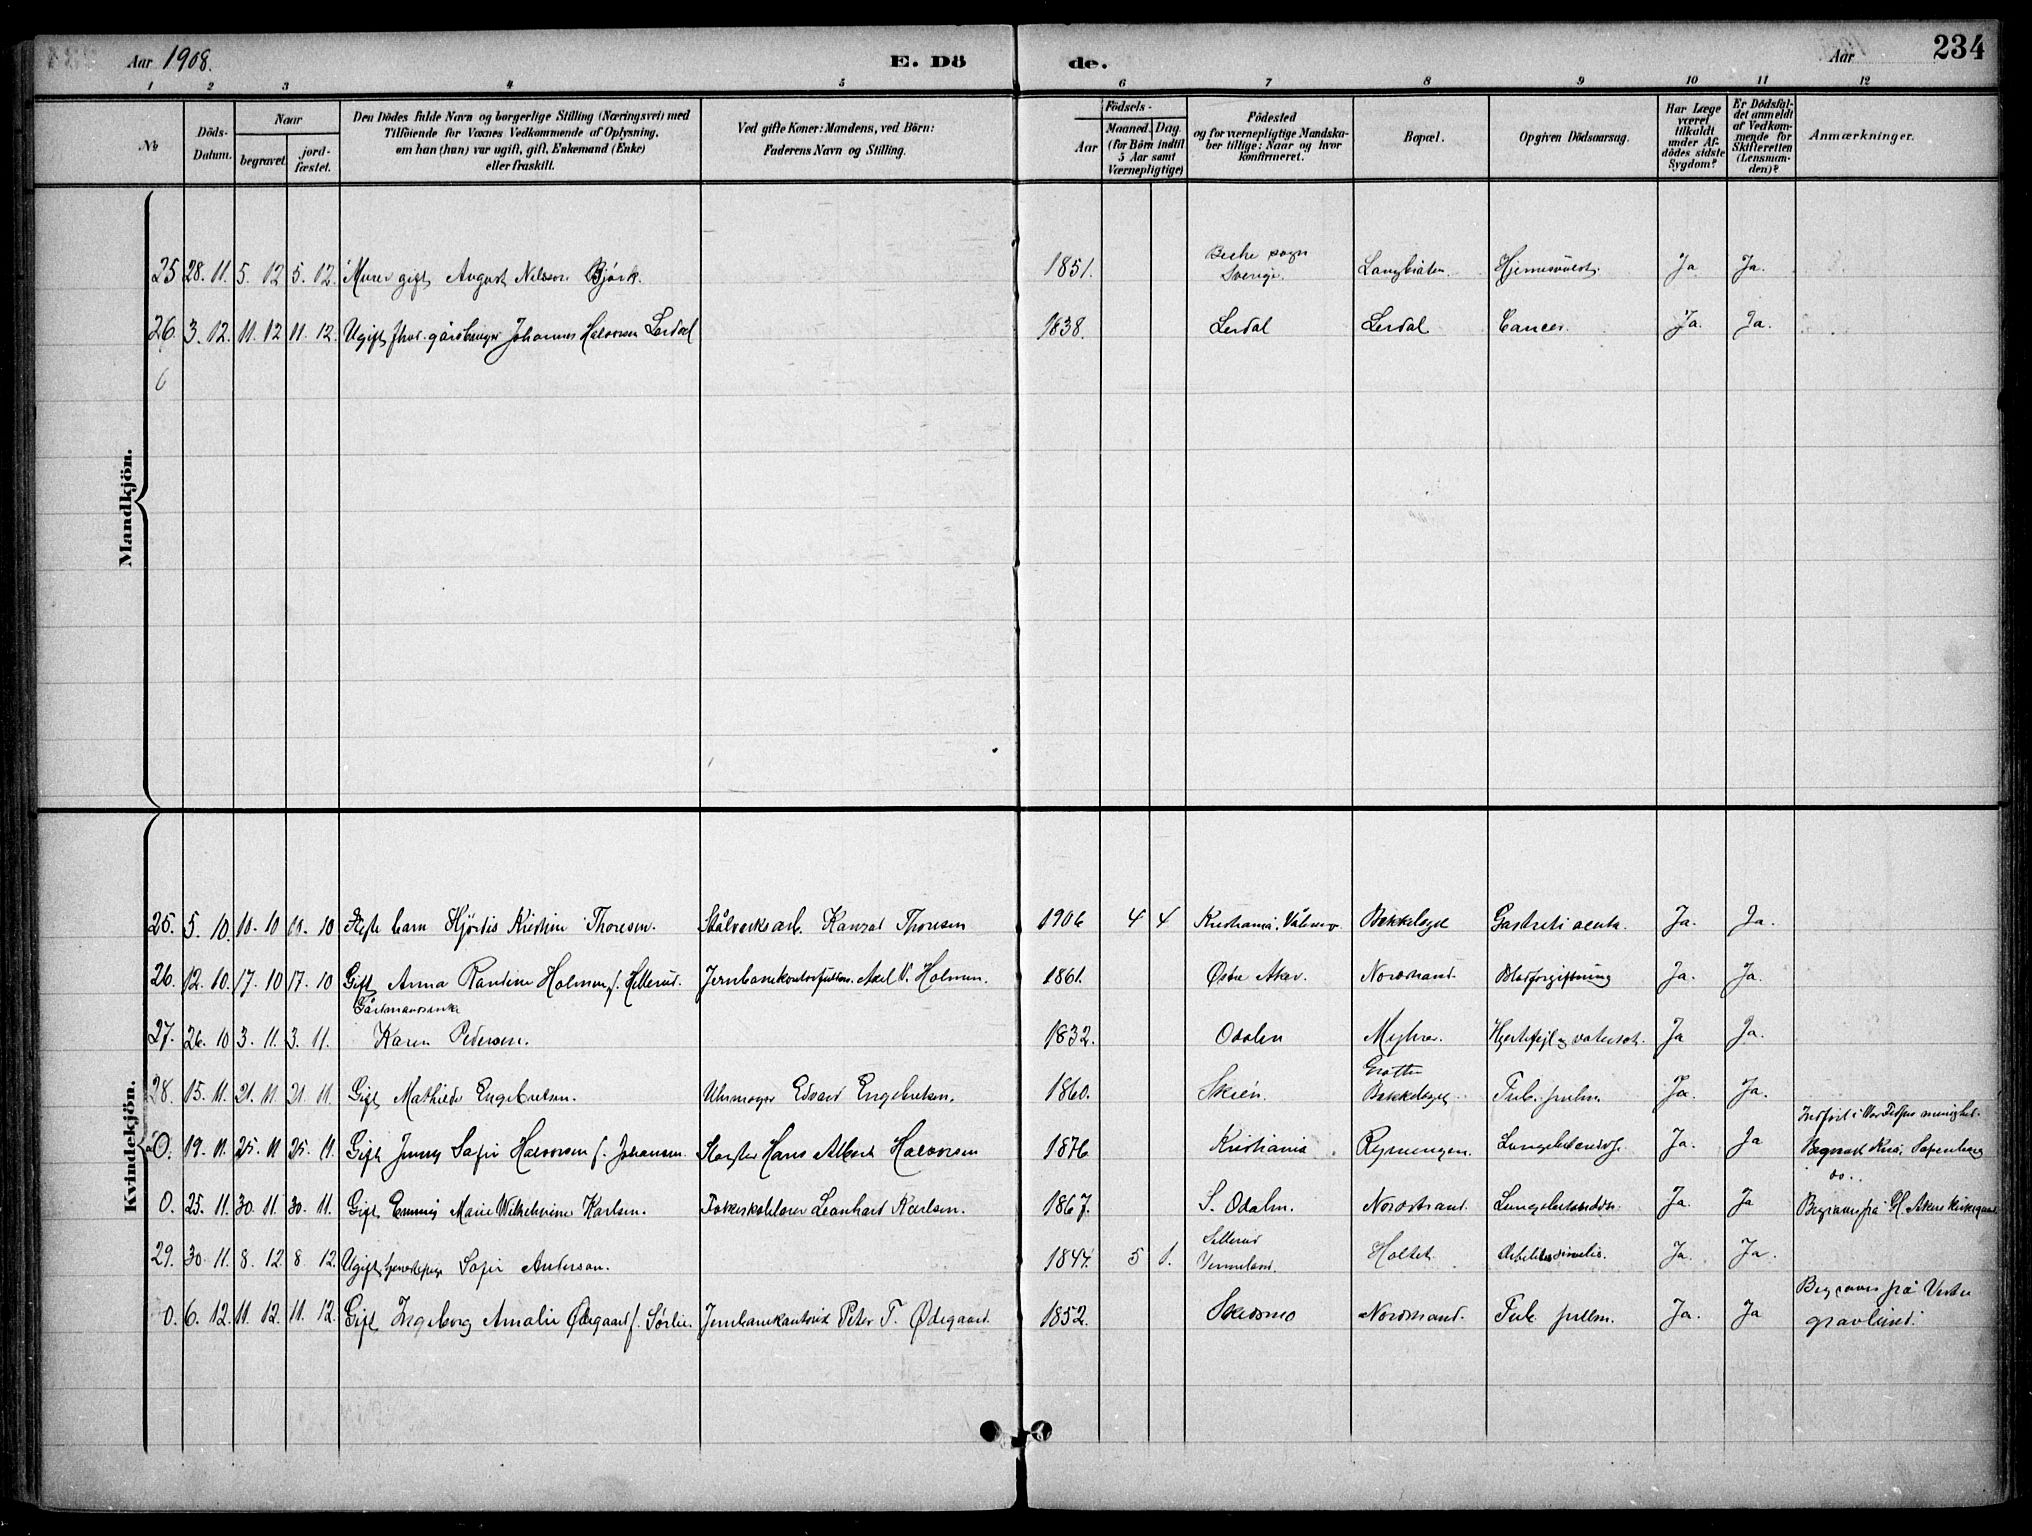 Aar 1908. E. Dö de. Aar 234
1 2 3 4 5 6 7 8 9 10 11 12
№ Döds-Datum. Naar begravet. jord-fæstet. Den Dödes fulde Navn og borgerlige Stilling (Næringsvei) med Tilföiende for Voxnes Vedkommende af Oplysning, om han (hun) var ugift, gift, Enkemand (Enke) eller fraskilt. Ved gifte Koner: Mandens, ved Börn: Faderens Navn og Stilling. Födsels- Aar Maaned. Dag. (for Börn indtil 5 Aar samt Værnepligtige) Födested og for værnepligtige Mandska-ber tillige: Naar og hvor konfirmeret. Bopæl. Opgiven Dödsaarsag. Har Læge været tilkaldt under Af-dödes sidste Sygdom? Er Dödsfal-det anmeldt af Vedkom-mende for Skifteretten (Lensman-den)? Anmærkninger.
Mandkjön.
25 28. 11. 5. 12 5. 12. Murer gift August Nilsson Björk. 1851. sogn Sverige. Langbråten. Ja Ja.
26. 3. 12. 11. 12 11. 12. Ugift fhv. Johannes Halvorsen Lerdal 1838. Lerdal Lerdal Cancer. Ja. Ja.
6
Kvindekjön.
25. 5. 10. 10. 10 10. 10 barn Hjördis Kristine Thoresen. Stålverksarb. Konrad Thoresen 1906 4 4 Kristiania, Bækkelaget Gastriti acuta. Ja. Ja.
26. 12. 10. 17. 10 17. 10 Gift Anna Randine Holmen, f. Hellerud. Axel V. Holmen. 1861. Östre Aker Nordstrand. Blodforgiftning Ja. Ja.
Gårdmandsenke
27. 26. 10 3. 11. 3. 11. Karen Pedersen. 1832. Odalen Hjertefejl og vatersot. Ja Ja.
28. 15. 11. 21. 11 21. 11. Gift Mathilde Engebretsen. Uhrmager Edvard Engebretsen. 1860. Skien. Grotten Bækkelaget Tub. pulm. Ja. Ja.
0. 19. 11. 25. 11 25. 11. Gift Jenny Sofie Halvorsen f. Johansen. Hans Albert Halvorsen 1876 Kristiania Ryenengen. Ja. Ja Indfört i Vor Frelsers menighet. Begravet
do.
0. 25. 11. 30. 11. 30. 11. Gift Emmy Marie Wilhelmine Karlsen. Leonhard Karlsen. 1867. S. Odalen. Nordstrand. Ja. Ja Begraves på Gl. Akers Kirkegaard
29. 30. 11. 8. 12. 8. 12. Ugift Sofie Andersen. 1844. 5 1. Sillerud Vermland. Holtet. Ja. Ja.
0. 6. 12. 11. 12. 11. 12. Gift Ingeborg Amalie Ödegaard f. Sörlie. Peter T. Ödegaard. 1852. Skedsmo Nordstrand. Tub. pulm. Ja. Ja Begraves på Vestre gravlund.